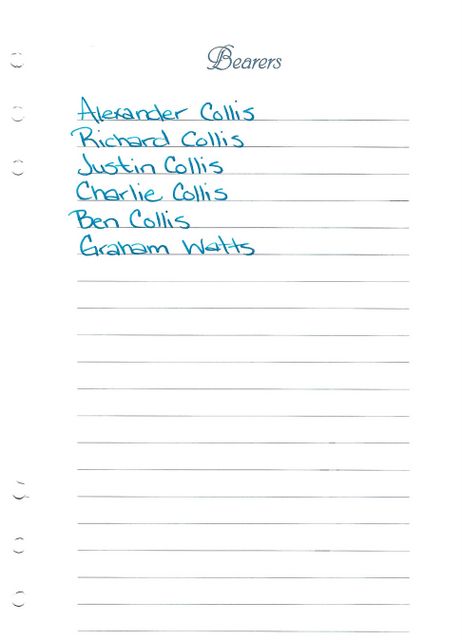 Bearers
Alexander Collis
Richard Collis
Justin Collis
Charlie Collis
Ben Collis
Graham Watts